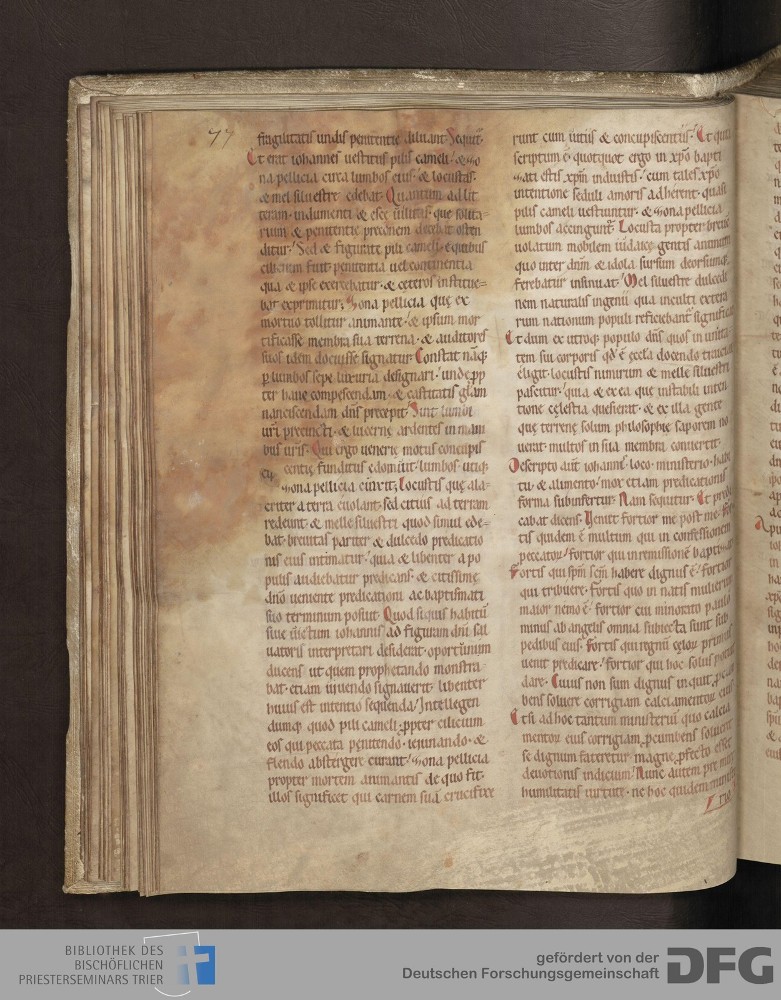 77
fragilitatis undis penitentie diluant. Sequit᷑.
Et erat iohannes uestitus pilis cameli. & zo
na pellicia circa lumbos eius. & locustas
& mel siluestre edebat. Quantum ad lit
teram. indumenti & esce uilitas. que solita
rium & penitentie preconem decebat osten
ditur. Sed & figurate pili cameli. equibus
cilicium fuit. penitentia uel continentia
qua & ipse exercebatur. & ceteros instrue
bat exprimitur. Zona pellicia que ex
mortuo tollitur animante. & ipsum mor
tificasse membra sua terrena. & auditores
suos idem docuisse signatur. Constat nāq;
ꝑ lumbos sepe luxuria designari. unde ꝓp
ter hanc compescendam. & castitatis gl̄am
nanciscendam dn̄s precepit. Sint lumbi
ur̄i precincti. & lucerne ardentes in mani
bus ur̄is. Qui ergo ueneris motus concupis
centie funditus edomuit. lumbos
zona pellicia cinxit. Locustis que ala
criter a terra euolant. sed citius ad terram
redeunt. & melle siluestri quod simul ede
bat. breuitas pariter & dulcedo predicatio
nis eius intimatur. quia & libenter a po
pulis audiebatur predicans. & citissime
dn̄o ueniente predicationi ac baptismati
suo terminum posuit. Quod siquis habitū
siue uictum iohannis ad figuram dn̄i sal
uatoris interpretari desiderat. oportunum
ducens ut quem prophetando monstra
bat. etiam uiuendo signauerit. libenter
huius est intentio sequenda. Intellegen
dumq; quod pili cameli. ꝓpter cilicium
eos qui peccata penitendo. ieiunando. &
flendo abstergere curant. Zona pellicia
propter mortem animantis de quo fit.
illos significet qui carnem suā crucifixe
runt cum uitiis & concupiscentiis. Et quia
scriptum ē. quotquot ergo in xp̄o bapti
zati estis xp̄m induistis. cum tales xp̄o
intentione seduli amoris adherent. quasi
pilis cameli uestiuntur. & zona pellicia
lumbos accingunt᷑. Locusta propter breuē
uolatum mobilem iudaice gentis animum
quo inter dn̄m & idola sursum deorsumq;
ferebatur insinuat. Mel siluestre dulcedi
nem naturalis ingenii qua inculti extera
rum nationum populi reficiebant significat.
Et dum ex utroq; populo dn̄s quos in unita
tem sui corporis qd̄ ē eccl̄a docendo traiciat
eligit. locustis nimirum & melle siluestri
pascitur. quia & ex ea que instabili inten
tione celestia quesierat. & ex illa gente
que terrene solum philosophie saporem no
uerat. multos in sua membra conuertit.
Descripto aut̄ iohanni. loco. ministerio. habi
tu. & alimento. mox etiam predicationis
forma subinfertur. Nam sequitur. Et predi
cabat dicens. Uenit fortior me post me. For
tis quidem ē multum qui in confessionem
peccator. fortior qui in remissione baptizat.
Fortis qui sp̄m sc̄m habere dignus ē. fortior
qui tribuere. Fortis quo in natis mulierum
maior nemo ē. fortior cui minorato paulo
minus ab angelis omnia subiecta sunt sub
pedibus eius. Fortis qui regnū celoꝝ primus
uenit predicare. fortior qui hoc solus potuit
dare. Cuius non sum dignus inquit procum
bens soluere corrigiam calciamentoꝝ eius.
Et si ad hoc tantum ministeriū quo calcia
mentoꝝ eius corrigiam ꝓcumbens soluere
se dignum fateretur. magne ꝓfecto esset
deuotionis indicium. Nunc autem pre nimie
humilitatis uirtute. ne hoc quidem
BIBLIOTHEK DES
BISCHÖFLICHEN
PRIESTERSEMINARS TRIER
gefördert von der
Deutschen Forschungsgemeinschaft
DFG